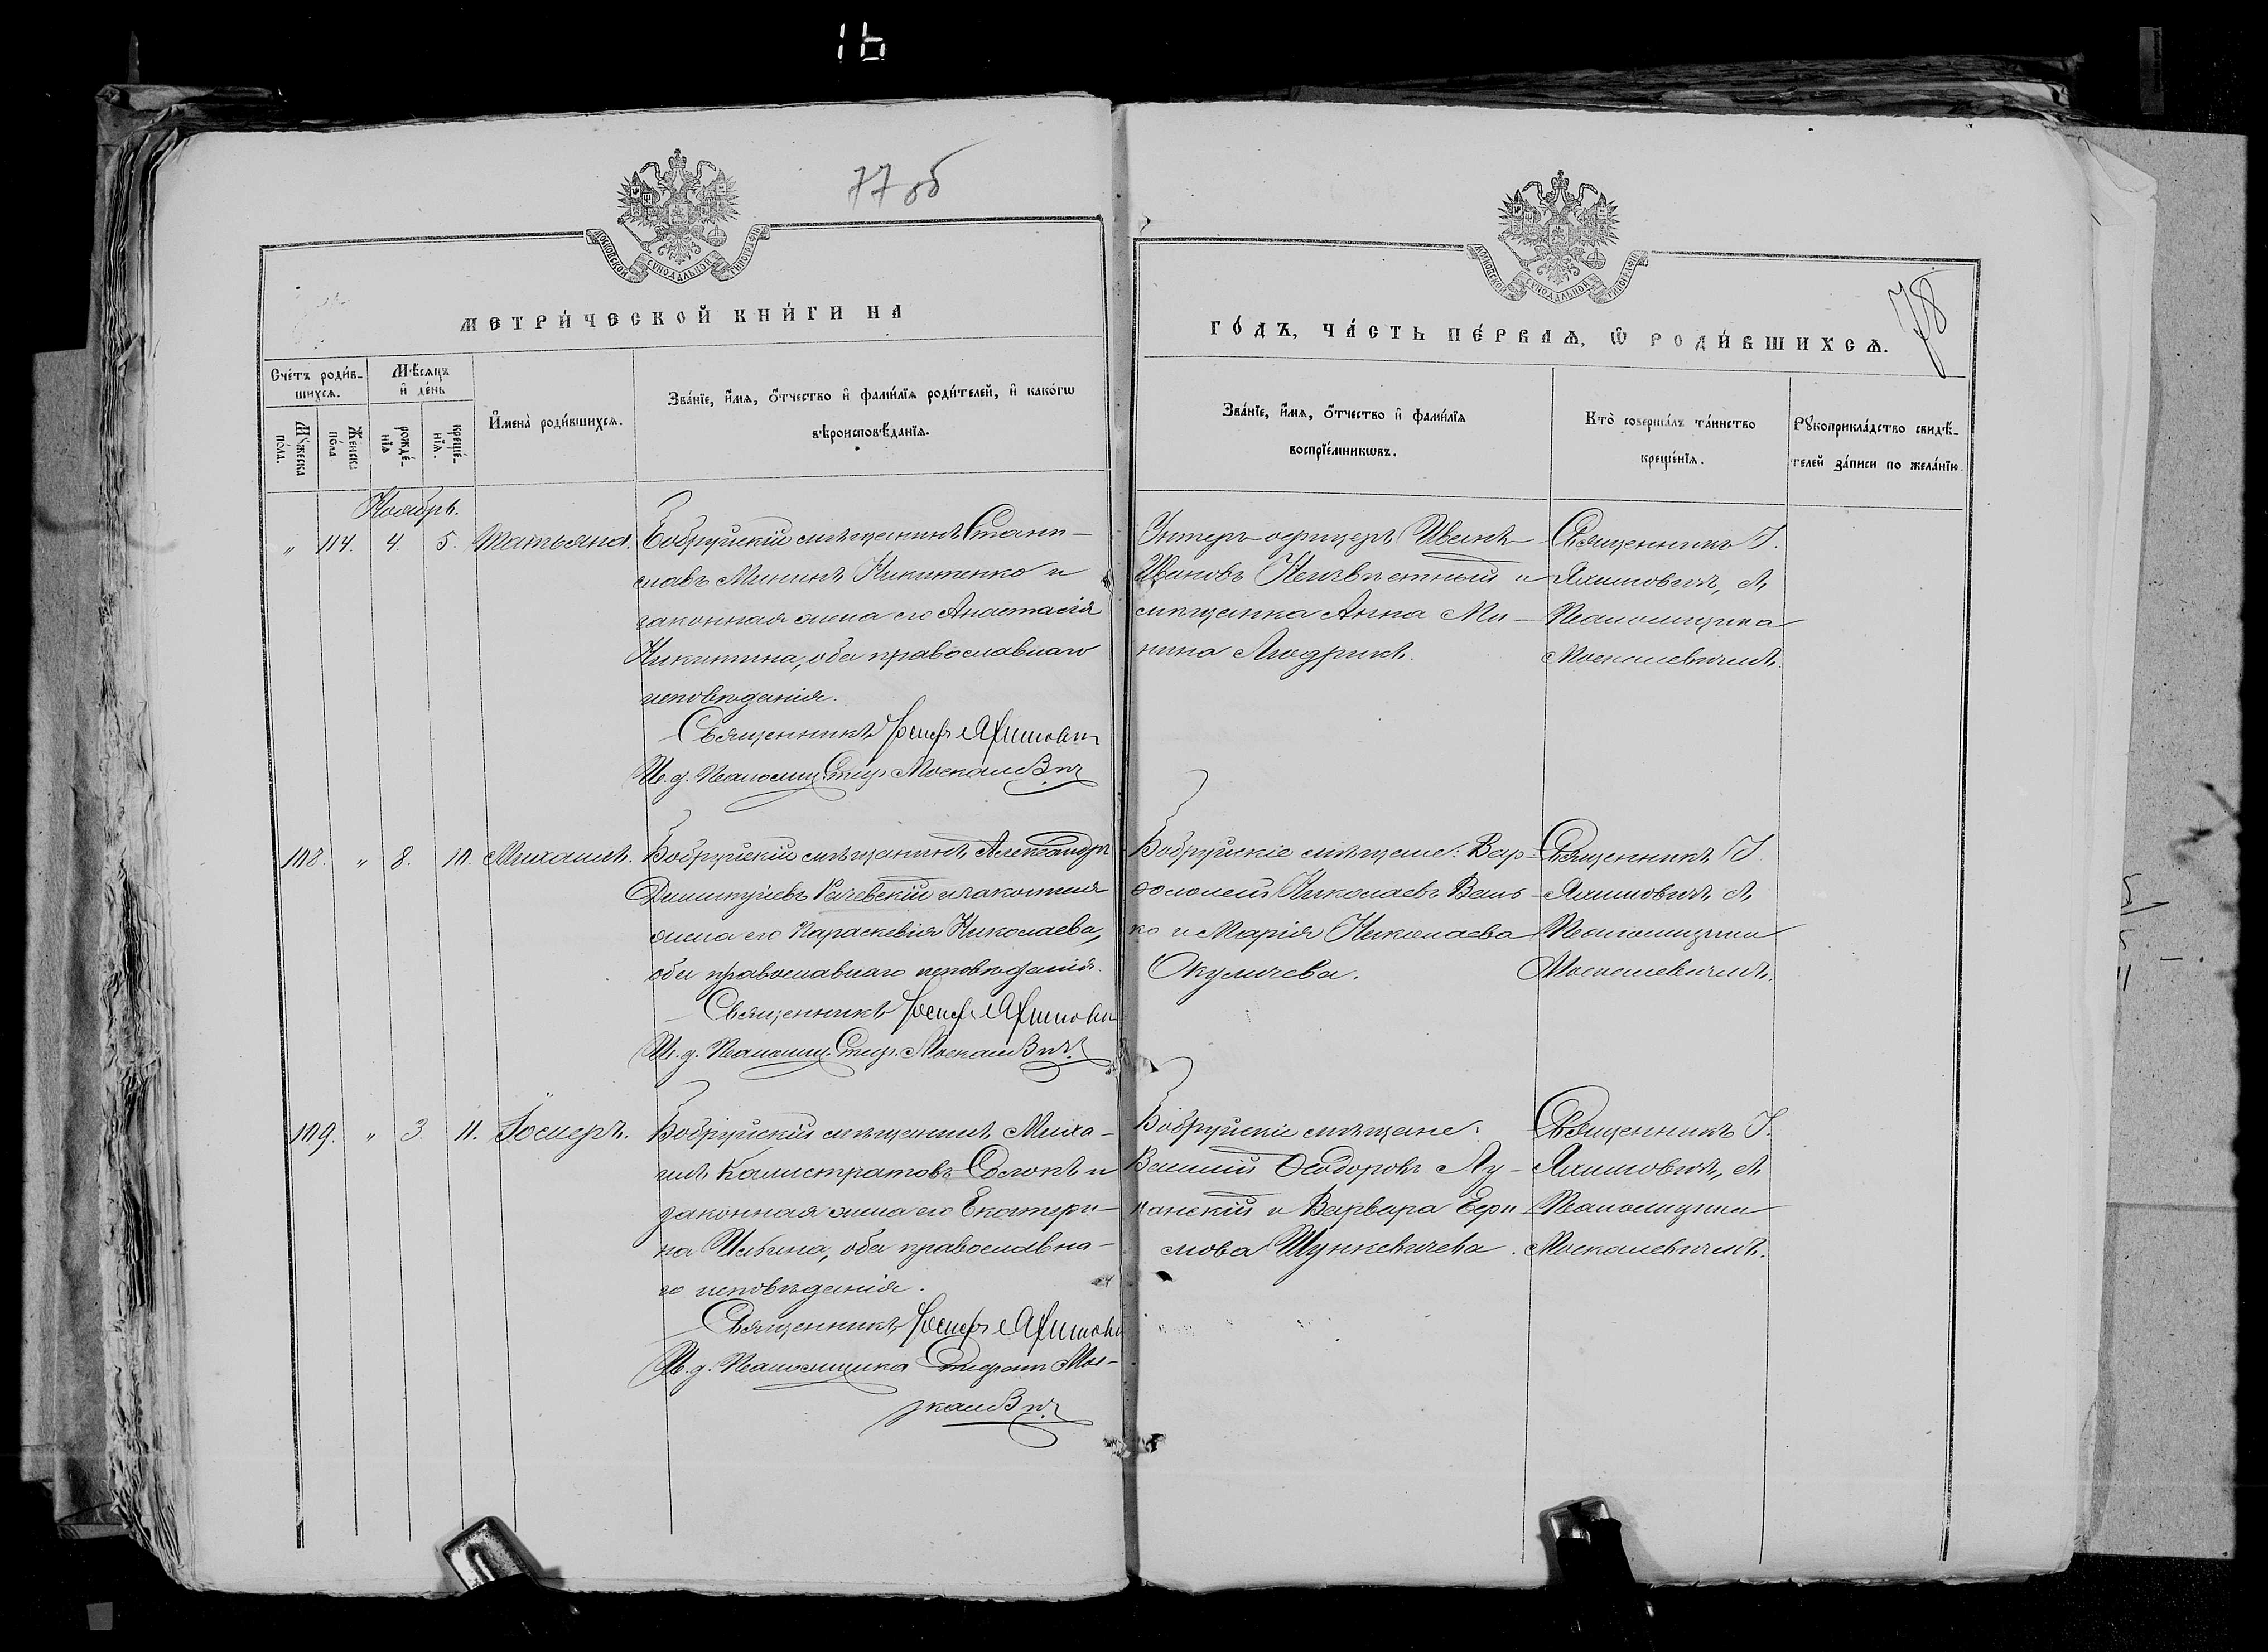 16
77 об
МОСКОВСКОЙ СѴНОДАЛЬНОЙ ТИПОГРАФІИ
МЕТРИ́ЧЕСКОЙ КНИ́ГИ НА
Сче́тъ роди́в-
шихсѧ.
Мѣ́сѧцъ
и҆ де́нь
Мꙋ́жеска
по́ла.
Же́нска
по́ла
рожде́-
нїѧ
креще́-
нїѧ.
И҆мена̀ роди́вшихсѧ.
Зва́нїе, и҆́мѧ, ѻ҆́тчество и҆ фами́лїѧ роди́телей, и҆ како́гѡ
вѣроисповѣ́данїѧ.
Ноябрь.
„ 114. 4. 5. Татьяна. Бобруйскій мѣщанинъ Стани-
славъ Мининъ Никитенко и
законная жена его Анастасія
Никитина, оба православнаго
исповѣданія.
Священникъ Іосифъ Яхимович
И. д. Псаломщ. Стеф. Москалевич
108. „ 8. 10. Михаилъ. Бобруйскій мѣщанинъ Александръ
Димитріевъ Рачевскій и законная
жена его Параскевія Николаева,
оба православнаго исповѣданія.
Священникъ Іосифъ Яхимович
И. д. Псаломщ. Стеф. Москалевич
109. „ 3. 11. Іосифъ. Бобруйскій мѣщанинъ Миха-
илъ Калистратовъ Солокъ и
законная жена его Екатери-
на Ильина, оба православна-
го исповѣданія.
Священникъ Іосифъ Яхимович
И. д. Псаломщика Стефан Мос-
калевич
78
МОСКОВСКОЙ СѴНОДАЛЬНОЙ ТИПОГРАФІИ
ГО́ДЪ, ЧА́СТЬ ПЕ́РВАѦ, Ѡ҆ РОДИ́ВШИХСѦ.
Зва́нїе, и҆́мѧ, ѻ҆́тчество и҆ фами́лїѧ
воспрїе́мникѡвъ.
Кто̀ соверша́лъ та́инство
креще́нїѧ.
Рꙋкоприкла́дство свидѣ́-
телей за́писи по жела́нїю.
Унтеръ-офицеръ Иванъ
Ивановъ Неизвѣстный и
мѣщанка Анна Ми-
нина Людрикъ.
Священникъ І.
Яхимовичъ, съ
Псаломщика
Москалевичемъ.
Бобруйскіе мѣщане: Вар-
ѳоломей Николаевъ Вань-
ко и Марія Николаева
Окуличева.
Священникъ І.
Яхимовичъ, съ
Псаломщика
Москалевичемъ.
Бобруйскіе мѣщане:
Василій Ѳеодоровъ Лу-
канскій и Варвара Ефи-
мова Шункевичева.
Священникъ І.
Яхимовичъ, съ
Псаломщика
Москалевичемъ.